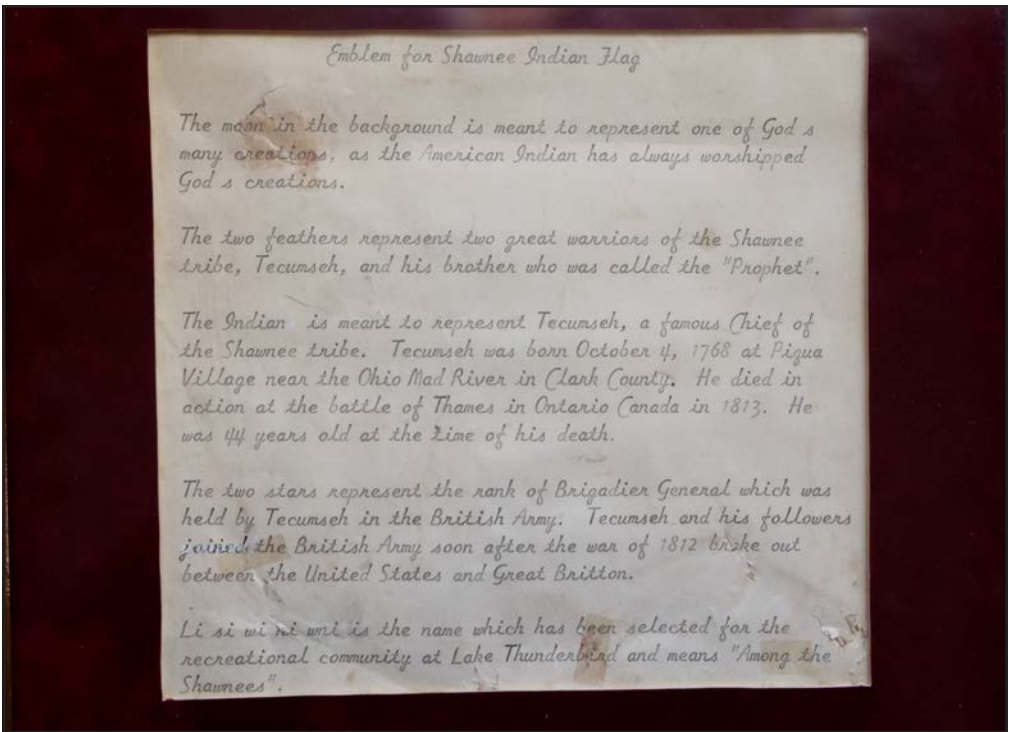 Emblem for Shawnee Indian Flag
The moon in the background is meant to represent one of God s
many creations, as the American Indian has always worshipped
God s creations.
The two feathers represent two great warriors of the Shawnee
tribe, Tecumseh, and his brother who was called the "Prophet".
The Indian is meant to represent Tecumseh, a famous Chief of
the Shawnee tribe. Tecumseh was born October 4, 1768 at Piqua
Village near the Ohio Mad River in Clark County. He died in
action at the battle of Thames in Ontario Canada in 1813. He
was 44 years old at the time of his death.
The two stars represent the rank of Brigadier General which was
held by Tecumseh in the British Army. Tecumseh and his followers
joined the British Army soon after the war of 1812 broke out
between the United States and Great Britton.
Li si wi ni wni is the name which has been selected for the
recreational community at Lake Thunderbird and means "Among the
Shawnees".